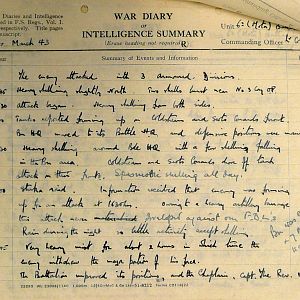 WAR DIARY
Diaries and Intelligence
d in F.S. Regs., Vol. I.
or
respectively. Title pages
INTELLIGENCE SUMMARY
(Erase heading not required)
Unit
Commanding Officer
March 43
Summary of Events and Information
The enemy attacked with 3 Armoured Divisions.
Heavy shelling slightly North. Two shells burst near No 3 Coy OP.
attack began. Heavy shelling from both sides.
Tanks reported forming up on Coldstream and Scots Guards front.
Bn HQ moved to its Battle HQ and defensive positions were manned
Heavy shelling around Bde HQ with a few shells falling
in the Bn area. Coldstream and Scots Guards drove off tank
attack on their front. Spasmodic shelling all day.
Stuka raid. Information received that enemy was forming
up for an attack at 1630hrs. Owing to heavy artillery barrage
this attack never developed against our FDLs
Rain during the night so little activity except shelling.
Very heavy mist for about 2 hours in which time the
enemy withdrew the major portion of his force.
The Battalion improved its positions, and the Chaplain, Capt. The Rev.